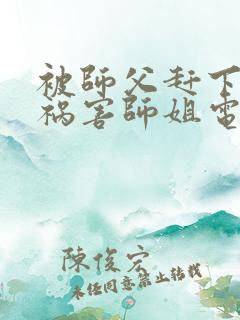 被師父赶下
祸害師姐電
陳俊宏
未经同意禁止转载